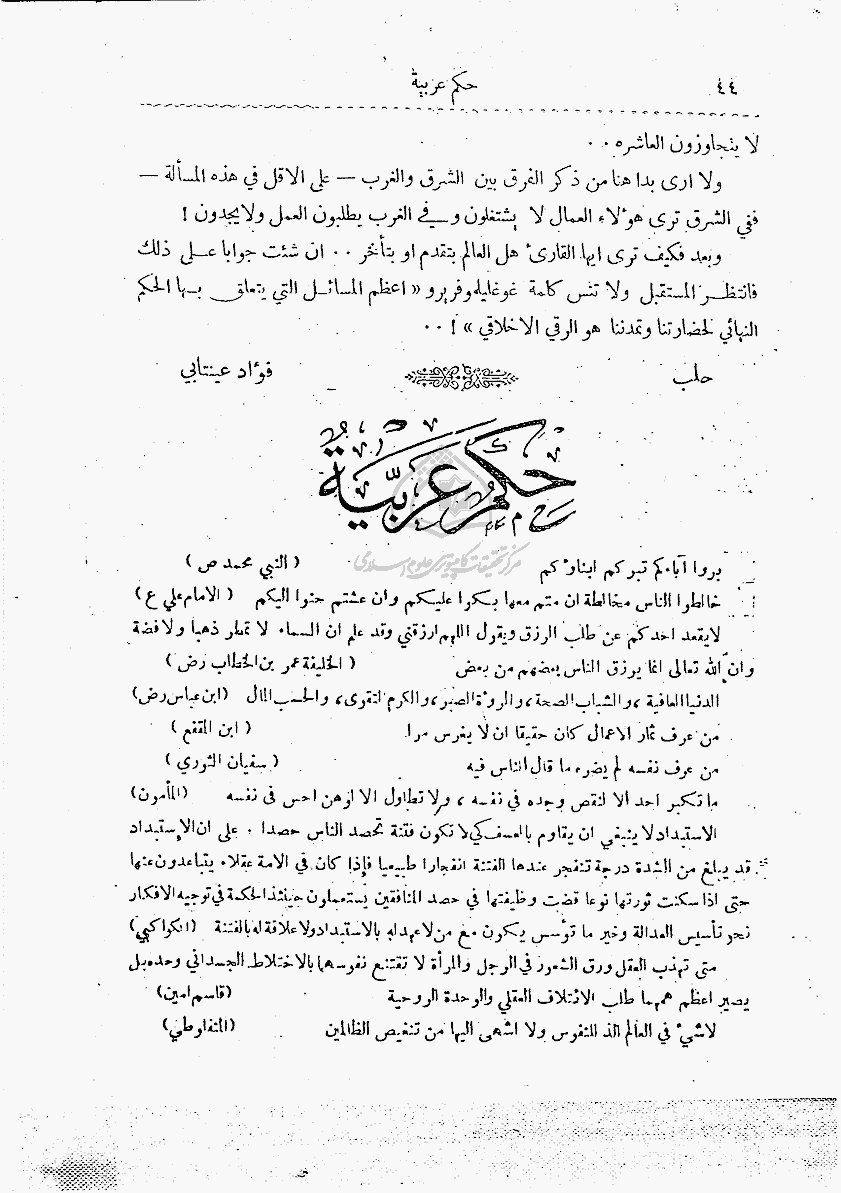 ٤٤
حكم عربية
لا يتجاوزون العاشره ٠٠
ولا ارى بدا هنا من ذكر الفرق بين الشرق والغرب — على الاقل في هذه المسألة —
ففي الشرق ترى هؤلاء العمال لا يشتغلون وفي الغرب يطلبون العمل ولا يجدون !
وبعد فكيف ترى ايها القارئ هل العالم يتقدم او يتأخر ٠٠ ان شئت جوابا على ذلك
فانتظر المستقبل ولا تنس كلمة غوغليلمو فريرو « اعظم المسائل التي يتعلق بها الحكم
النهائي لحضارتنا وتمدننا هو الرقي الاخلاقي » ! ٠٠
حلب
فؤاد عينتابي
حكم عربية
مركز تحقيقات كامپيوترى علوم اسلامى
بروا آباءكم تبركم ابناؤكم ( النبي محمد ص )
خالطوا الناس مخالطة ان متم معها بكوا عليكم وان عشتم حنوا اليكم ( الامام علي ع )
لا يقعد احدكم عن طلب الرزق ويقول اللهم ارزقني وقد علم ان السماء لا تمطر ذهبا ولا فضة
وان الله تعالى انما يرزق الناس بعضهم من بعض ( الخليفة عمر بن الخطاب رض )
الدنيا العافية ، والشباب الصحة ، والمروءة الصبر ، والكرم التقوى ، والحسب المال (ابن عباس رض)
من عرف ثمار الاعمال كان حقيقا ان لا يغرس مرا ( ابن المقفع )
من عرف نفسه لم يضره ما قال الناس فيه ( سفيان الثوري )
ما تكبر احد الا لنقص وجده في نفسه ، ولا تطاول الا لوهن احس في نفسه (المأمون)
الاستبداد لا ينبغي ان يقاوم بالعسف كي لا تكون فتنة تحصد الناس حصدا ٠ على ان الاستبداد
قد يبلغ من الشدة درجة تنفجر عندها الفتنة انفجارا طبيعيا فإذا كان في الامة عقلاء يتباعدون عنها
حتى اذا سكنت ثورتها نوعا قضت وظيفتها في حصد المنافقين يستعملون حينئذ الحكمة في توجيه الافكار
نحو تأسيس العدالة وخير ما تؤسس يكون مع من لا عهد له بالاستبداد ولا علاقة له بالفتنة (الكواكبي)
متى تهذب العقل ورق الشعور في الرجل والمرأة لا تقتنع نفوسها بالاختلاط الجسداني وحده بل
يصير اعظم همهما طلب الائتلاف العقلي والوحدة الروحية (قاسم امين)
لا شيء في العالم الذ للنفوس ولا اشهى اليها من تنغيص الظالمين (المنفلوطي)